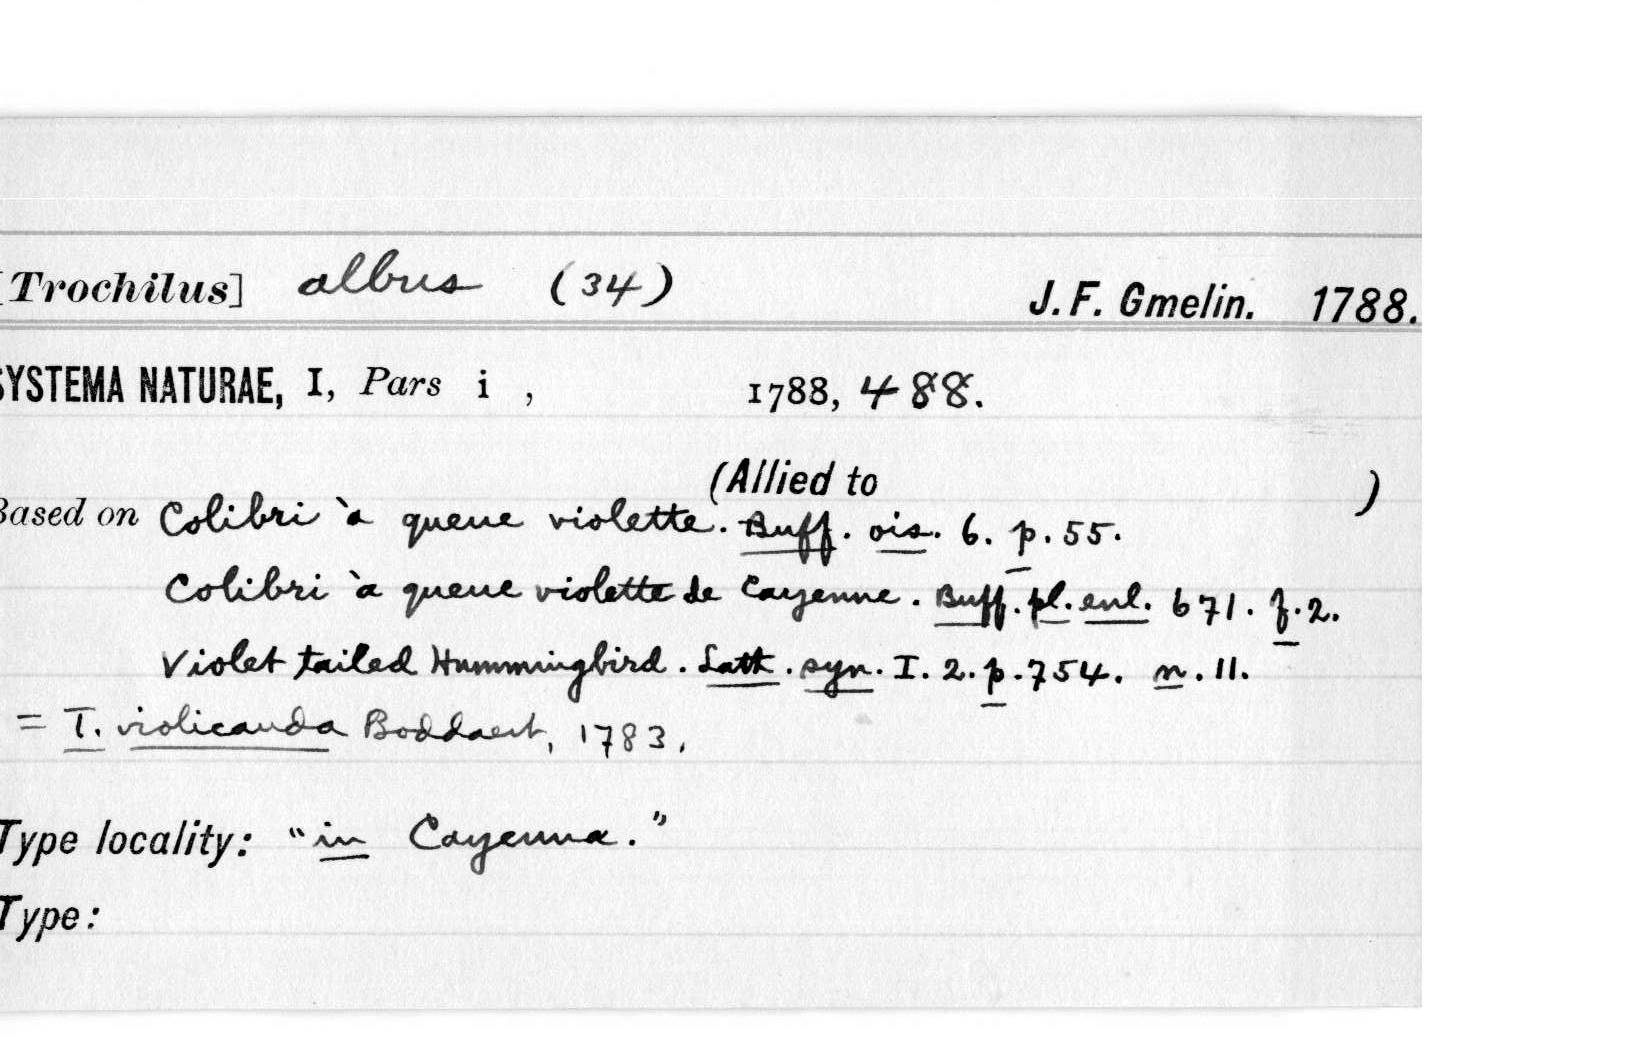 [Trochilus] albus (34) J. F. Gmelin. 1788.
SYSTEMA NATURAE, I, Pars i , 1788, 488.
(Allied to )
Based on Colibri à queue violette. Buff. ois. 6. p. 55.
Colibri à queue violette de Cayenne. Buff. pl. enl. 671. f. 2.
Violet tailed Hummingbird. Lath. syn. I. 2. p. 754. n. 11.
= T. violicauda Boddaert, 1783.
Type locality: "in Cayenna."
Type: